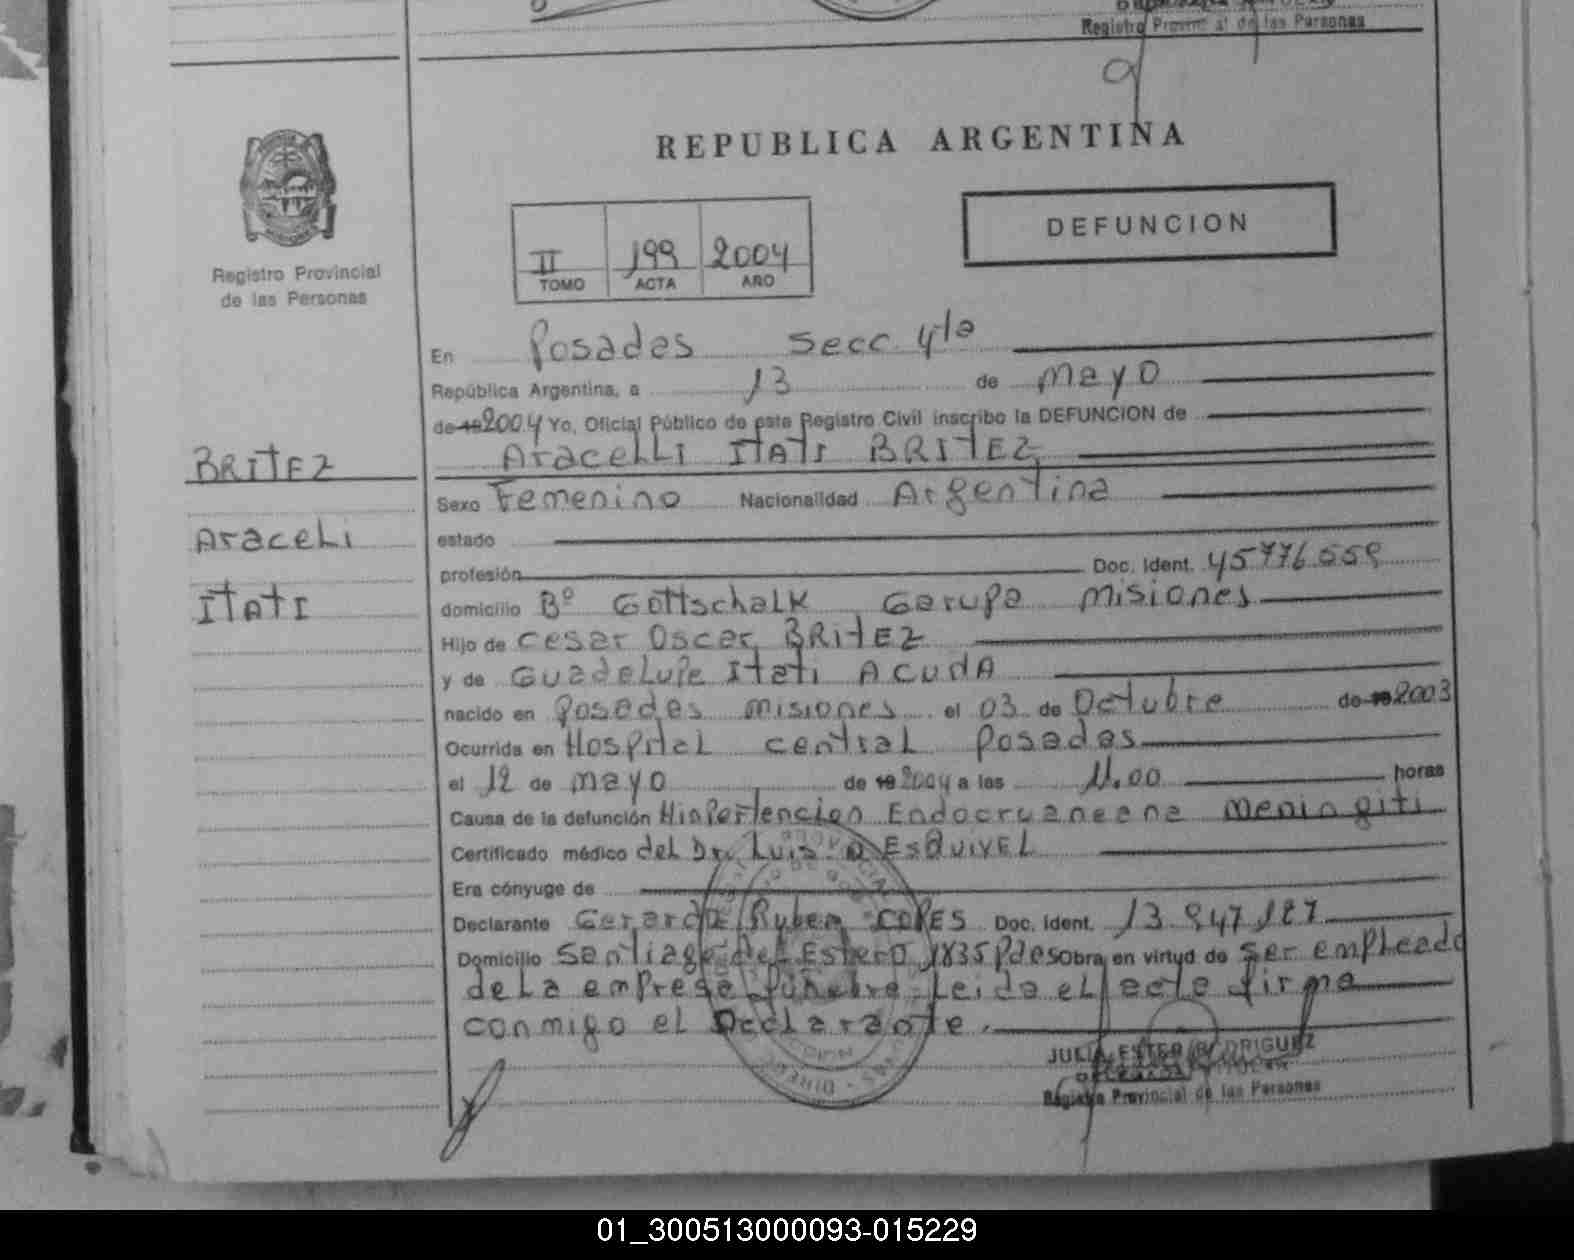 Registro Provincial de las Personas
REPUBLICA ARGENTINA
Registro Provincial
de las Personas
II 199 2004
TOMO ACTA AÑO
DEFUNCION
En Posadas Secc. 4ta
República Argentina, a 13 de mayo
de 19 2004 Yo, Oficial Público de este Registro Civil inscribo la DEFUNCION de
BRITEZ
Aracelli ITATI BRITEZ
Sexo Femenino Nacionalidad Argentina
Araceli
estado
profesión Doc. Ident. 45776.559
ITATI
domicilio Bº Gottschalk Garupa misiones
Hijo de Cesar Oscar BRITEZ
y de Guadelupe Itati ACUÑA
nacido en Posadas misiones el 03 de Octubre de 19 2003
Ocurrida en Hospital central Posadas
el 12 de mayo de 19 2004 a las 11.00 horas
Causa de la defunción Hinpertencion Endocruaneana meningiti
Certificado médico del Dr. Luis A EsQUIVEL
Era cónyuge de
Declarante Gerardo Ruben COPES Doc. Ident. 13.847.187
Domicilio Santiago del Estero 1835 Pdas Obra en virtud de ser empleado
de la empresa funebre. Leida el acta firma
conmigo el Declarante.
JULIA ESTER RODRIGUEZ
Registro Provincial de las Personas
01_300513000093-015229